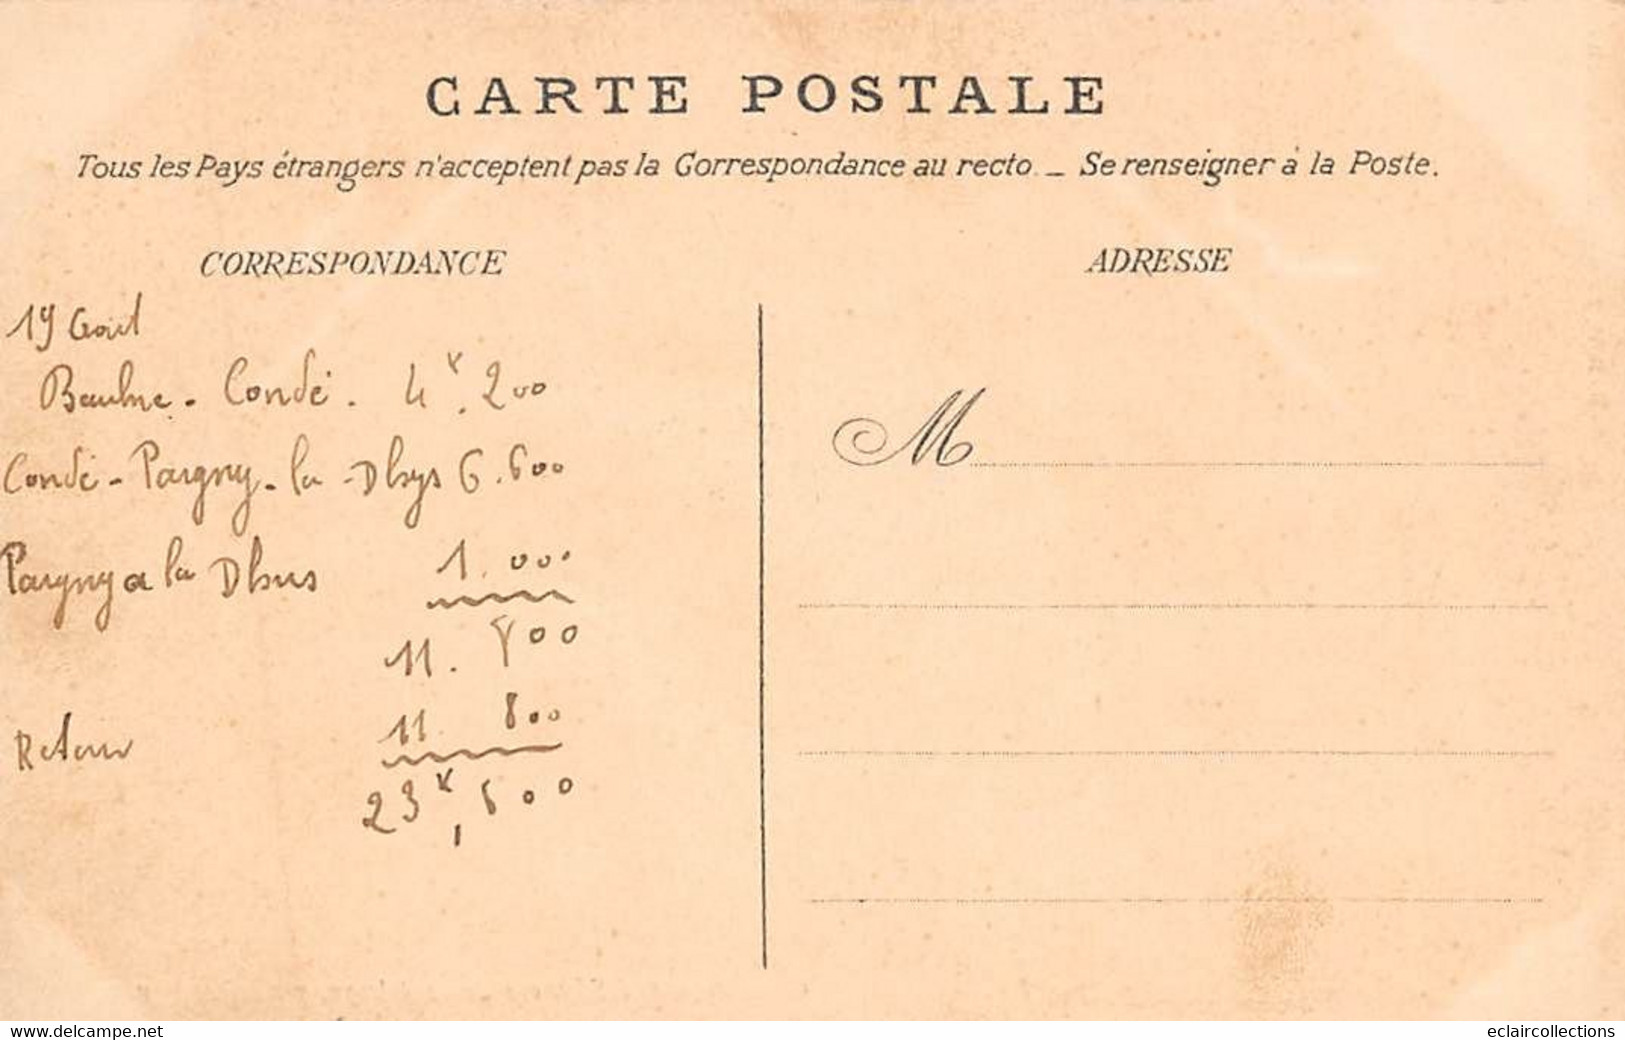 CARTE POSTALE
Tous les Pays étrangers n'acceptent pas la Correspondance au recto. — Se renseigner à la Poste.
CORRESPONDANCE
ADRESSE
19 Août
Baulne - Condé. 4ᴷ.200
Condé - Pargny-la-Dhys 6.600
Pargny a la Dhuis 1.000
11.800
Retour 11.800
23ᴷ,600
M
www.delcampe.net
eclaircollections